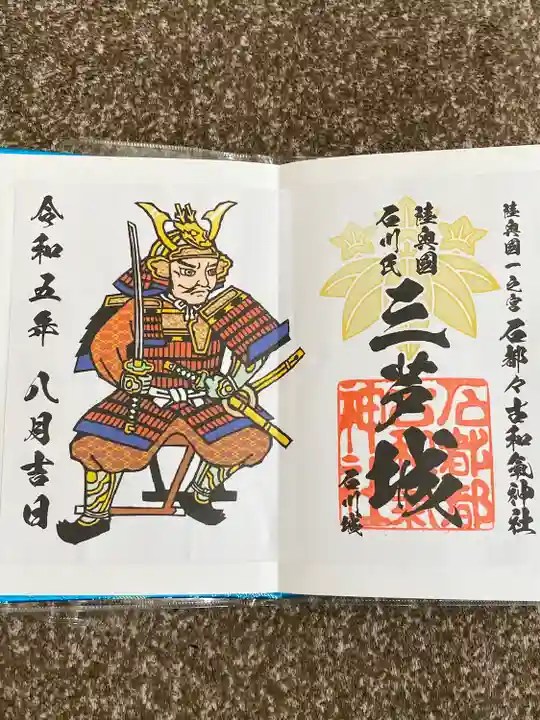 陸奥國一之宮 石都々古和氣神社
陸奥國
石川氏
三芦城
石川城
石都都
神社
令和五年 八月吉日